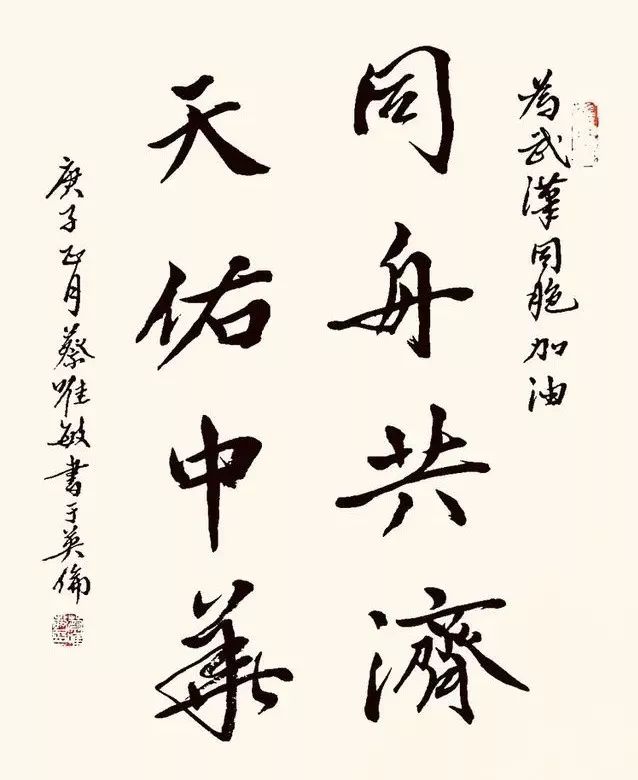 為武漢同胞加油
同舟共濟
天佑中華
庚子正月蔡唯敏書于英倫